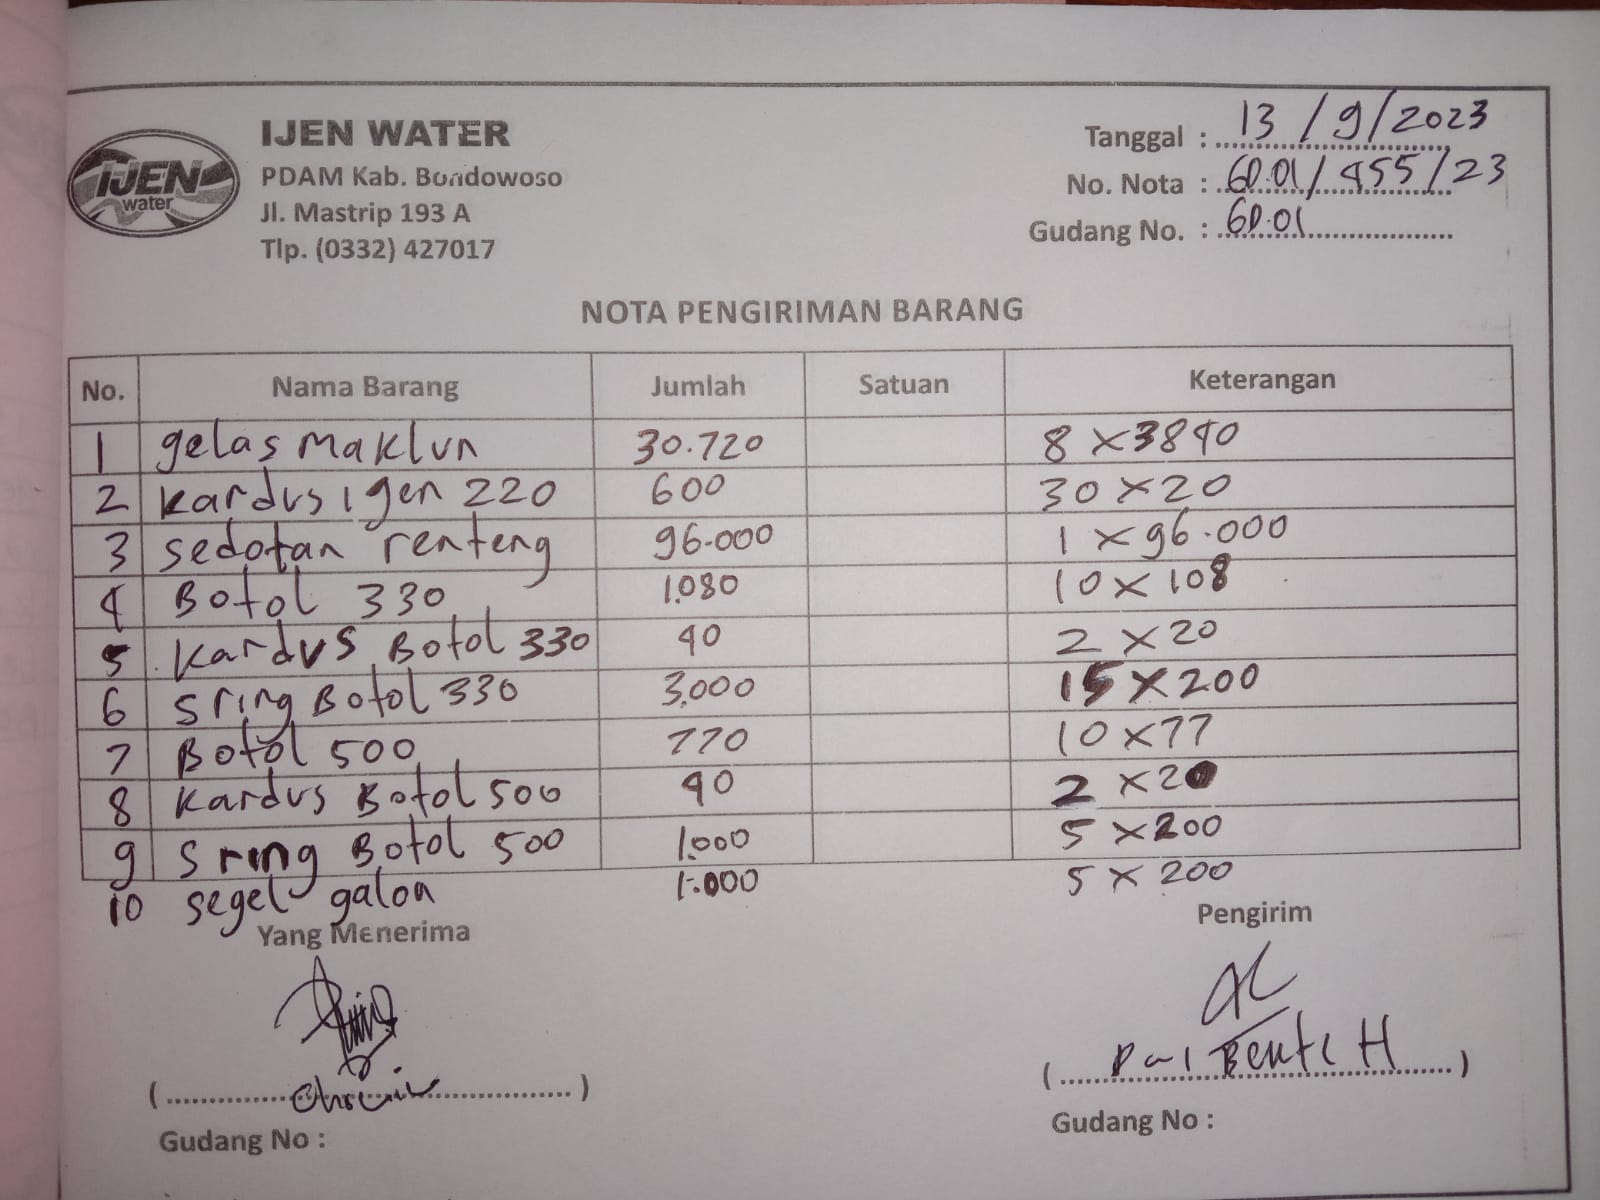 IJEN WATER
PDAM Kab. Bondowoso
Jl. Mastrip 193 A
Tlp. (0332) 427017
IJEN
water
Tanggal : 13/9/2023
No. Nota : 60.01/455/23
Gudang No. : 60.01
NOTA PENGIRIMAN BARANG
No. Nama Barang Jumlah Satuan Keterangan
1 gelas Maklun 30.720 8 x 3840
2 kardus ijen 220 600 30 x 20
3 sedotan renteng 96.000 1 x 96.000
4 Botol 330 1.080 10 x 108
5 kardus Botol 330 40 2 x 20
6 Sring Botol 330 3.000 15 x 200
7 Botol 500 770 10 x 77
8 Kardus Botol 500 40 2 x 20
9 Sring Botol 500 1.000 5 x 200
10 segel galon 1.000 5 x 200
Yang Menerima Pengirim
(....................) (....................)
Gudang No : Gudang No :